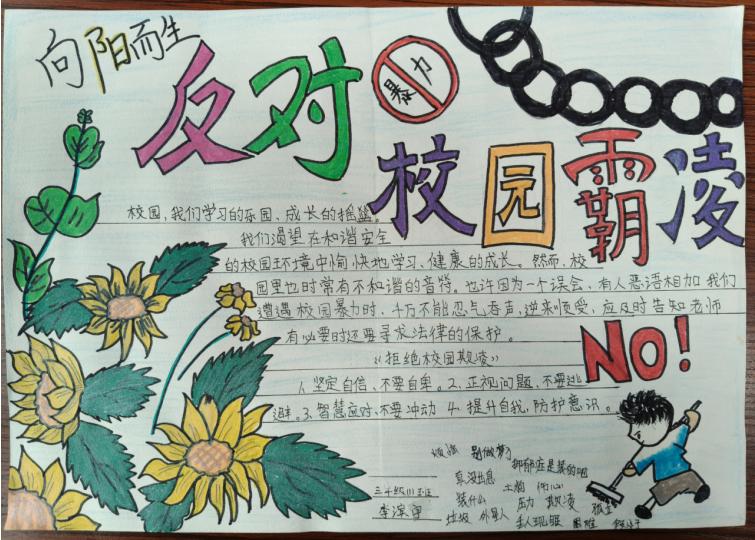 向阳而生
反对
暴力
校园霸凌
校园,我们学习的乐园、成长的摇篮。
我们渴望在和谐安全
的校园环境中愉快地学习、健康的成长。然而,校
园里也时常有不和谐的音符。也许因为一个误会、有人恶语相加我们
遭遇校园暴力时、千万不能忍气吞声,逆来顺受、应及时告知老师
有必要时还要寻求法律的保护。
《拒绝校园欺凌》
1、坚定自信、不要自卑。2、正视问题,不要逃
避。3、智慧应对、不要冲动 4、提升自我,防护意识。
NO!
别做梦了
抑郁症是装的吧
真没出息
土狗
装什么
压力 欺凌 孤立
垃圾
丢人现眼
三年级